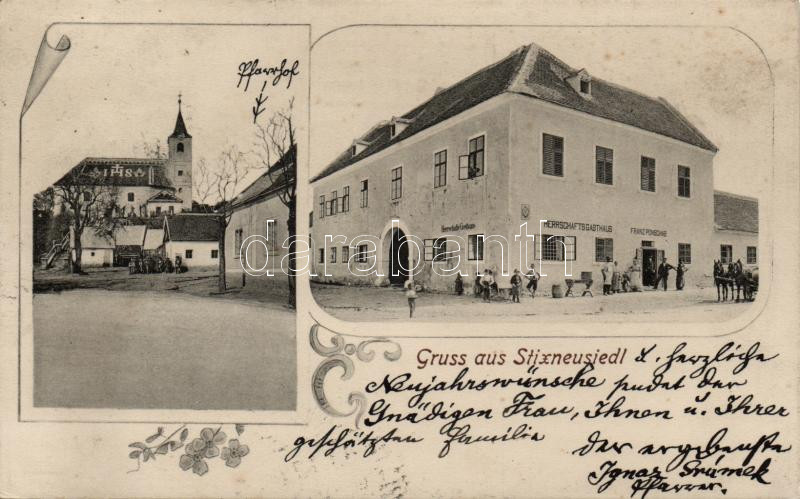 Pfarrhof
IHS
Herrschafts Gasthaus
HERRSCHAFTSGASTHAUS
FRANZ PONSCHAB
darabanth.com
Gruss aus Stixneusiedl u. herzliche
Neujahrswünsche sendet der
Gnädigen Frau, Ihnen u. Ihrer
geschätzten Familie
der ergebenste
Ignaz
Pfarrer.